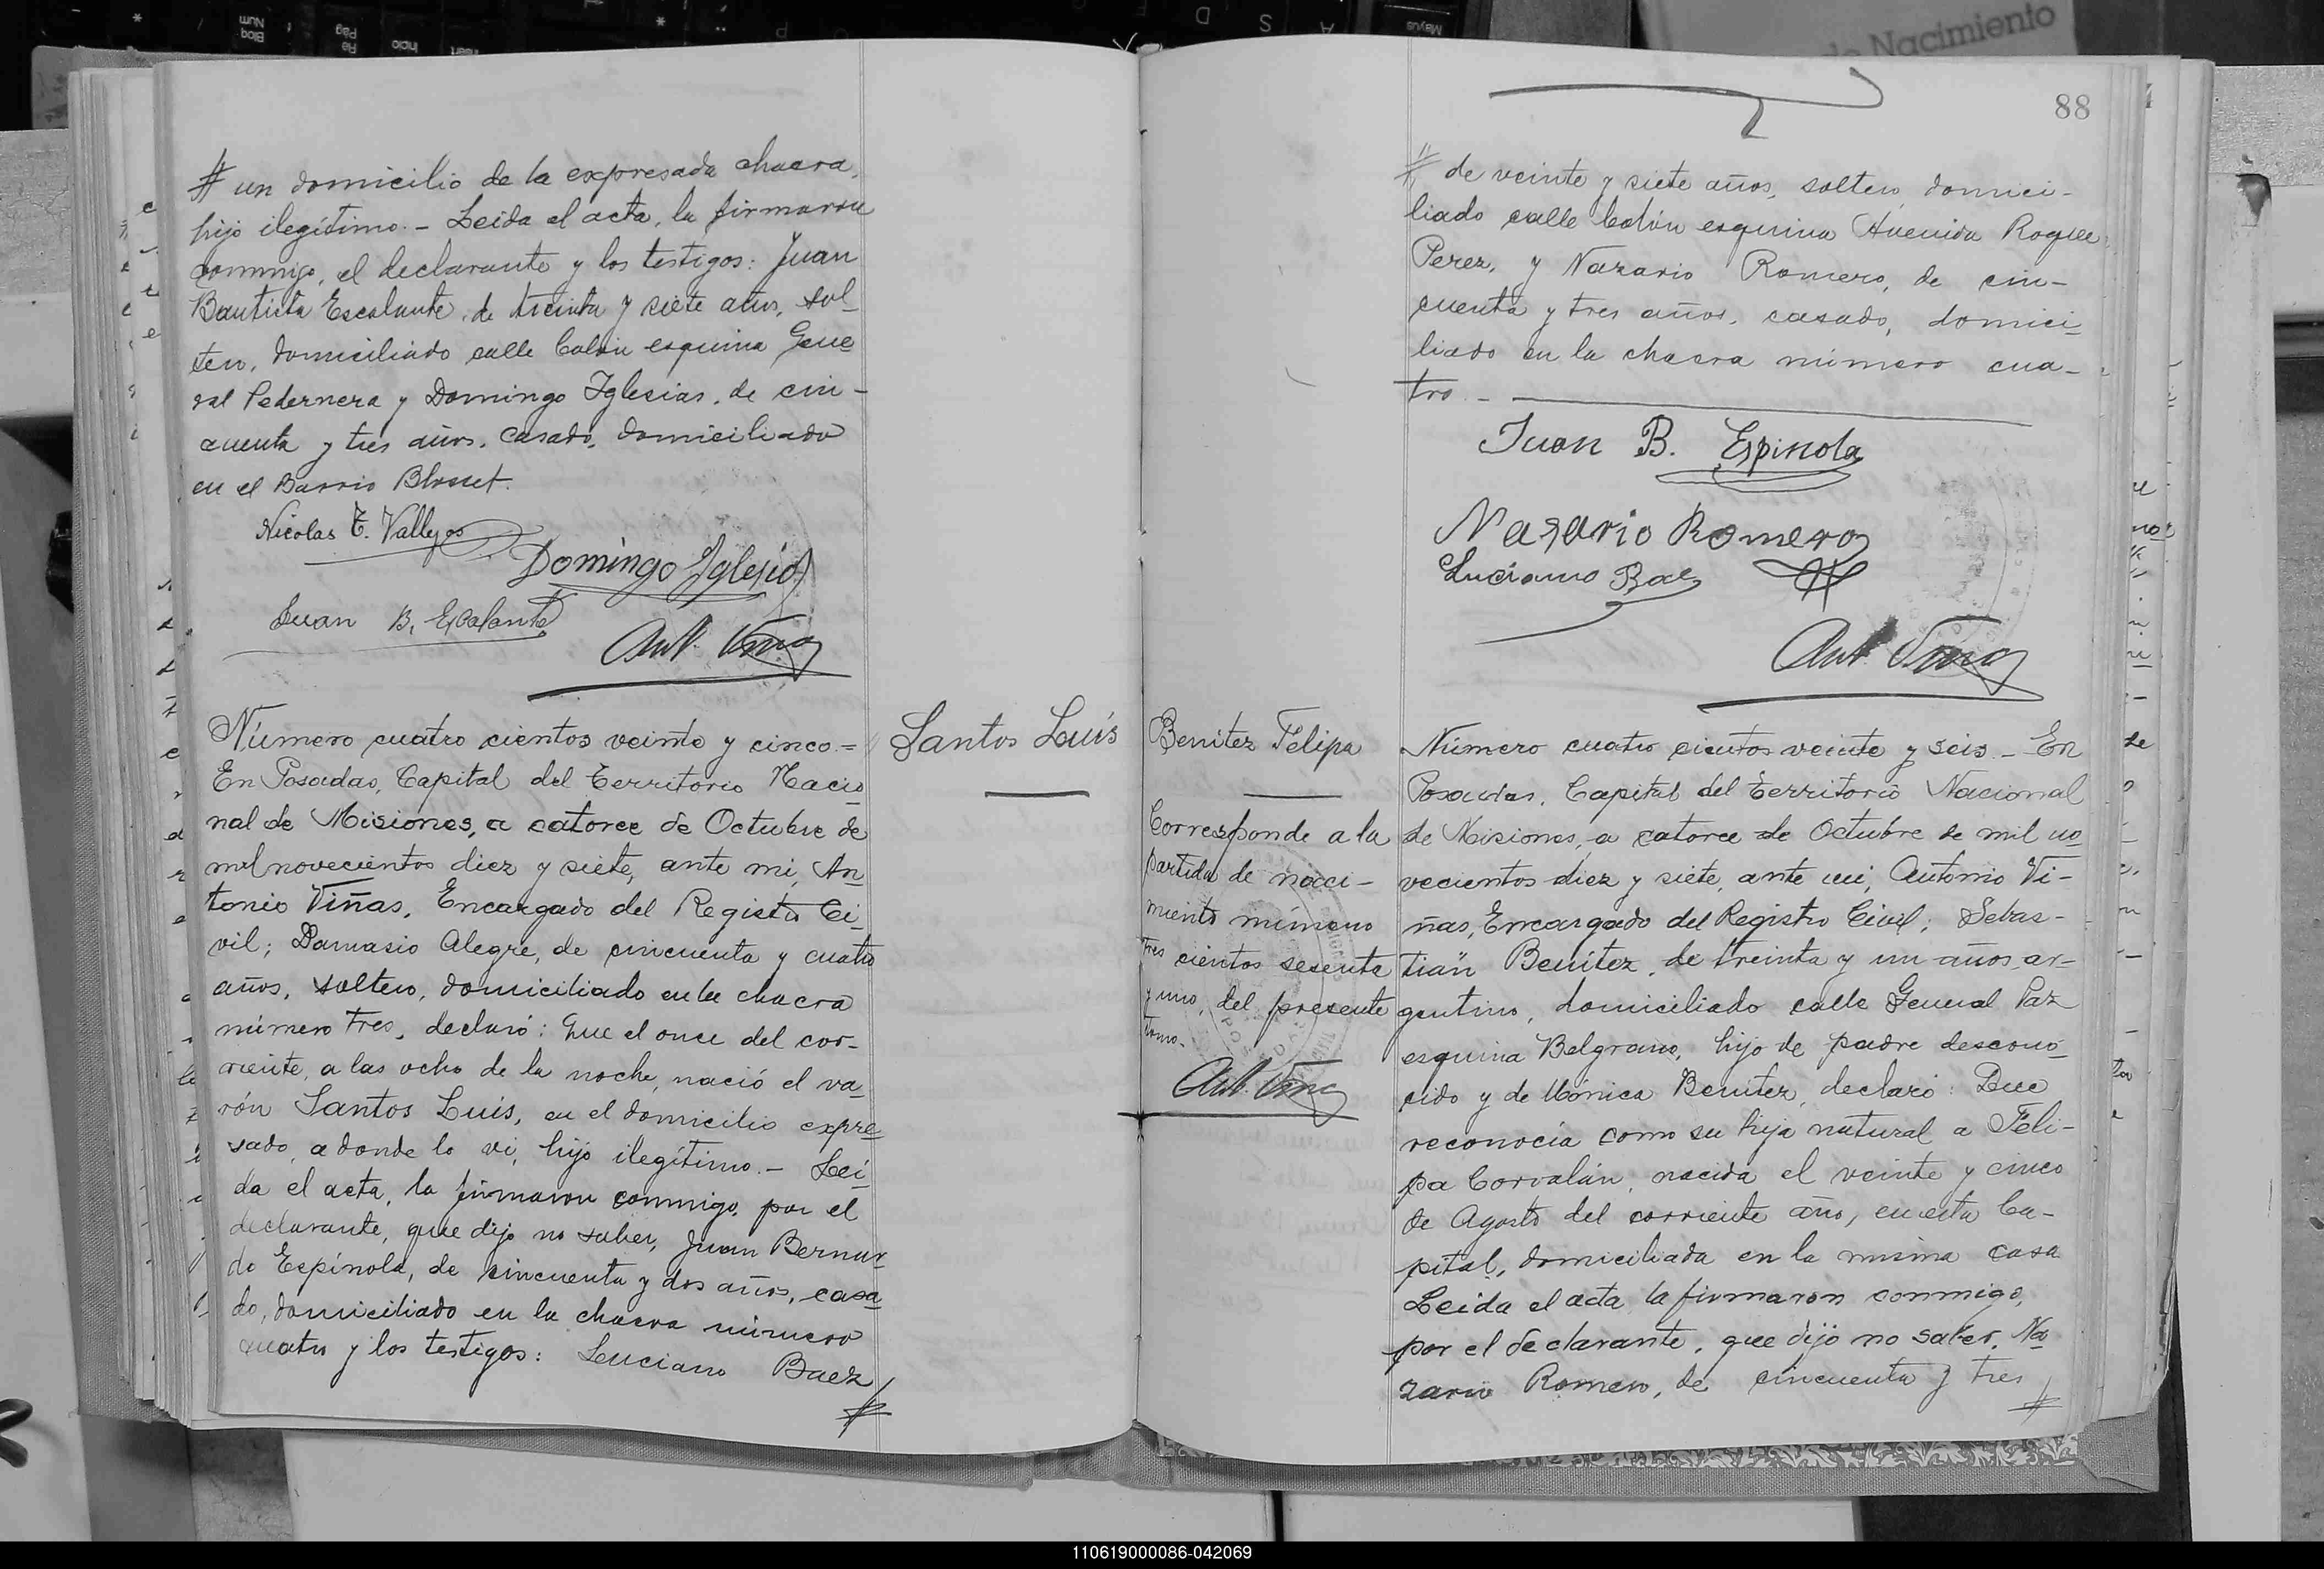 88
# un domicilio de la expresada chacra,
hijo ilegítimo.- Leida el acta, la firmaron
conmigo, el declarante y los testigos: Juan
Bautista Escalante, de treinta y siete años, sol-
tero, domiciliado calle Colón esquina Gene-
ral Pedernera y Domingo Iglesias, de cin-
cuenta y tres años, casado, domiciliado
en el Barrio Blosset.
Nicolas T. Vallejos
Domingo Iglesias
Juan B. Escalante
Ant. Viñas
Número cuatro cientos veinte y cinco.=
En Posadas, Capital del Territorio Nacio-
nal de Misiones, a catorce de Octubre de
mil novecientos diez y siete, ante mi, An-
tonio Viñas, Encargado del Registro Ci-
vil; Damasio Alegre, de cincuenta y cuatro
años, soltero, domiciliado en la chacra
número tres, declaró: Que el once del cor-
riente, a las ocho de la noche, nació el va-
rón Santos Luis, en el domicilio expre-
sado, a donde lo vi, hijo ilegítimo.- Lei-
da el acta, la firmaron conmigo, por el
declarante, que dijo no saber, Juan Bernar-
do Espínola, de cincuenta y dos años, casa-
do, domiciliado en la chacra número
cuatro y los testigos: Luciano Baez
#
Santos Luis
# de veinte y siete años, soltero, domici-
liado calle Colón esquina Avenida Roque
Perez, y Nazario Romero, de cin-
cuenta y tres años, casado, domici-
liado en la chacra número cua-
tro.-
Juan B. Espinola
Nazario Romero
Luciano Baez
Ant. Viñas
Benitez Felipa
Corresponde a la
partida de naci-
miento número
tres cientos sesenta
y uno, del presente
tomo.
Ant. Viñas
Número cuatro cientos veinte y seis.- En
Posadas, Capital del Territorio Nacional
de Misiones, a catorce de Octubre de mil no-
vecientos diez y siete, ante mi, Antonio Vi-
ñas, Encargado del Registro Civil; Sebas-
tian Benitez, de treinta y un años, ar-
gentino, domiciliado calle General Paz
esquina Belgrano, hijo de padre descono-
cido y de Mónica Benitez, declaró: Que
reconocía como su hija natural a Feli-
pa Corvalán, nacida el veinte y cinco
de Agosto del corriente año, en esta Ca-
pital, domiciliada en la misma casa
Leida el acta, la firmaron conmigo,
por el declarante, que dijo no saber, Na-
zario Romero, de cincuenta y tres
#
de Nacimiento
110619000086-042069